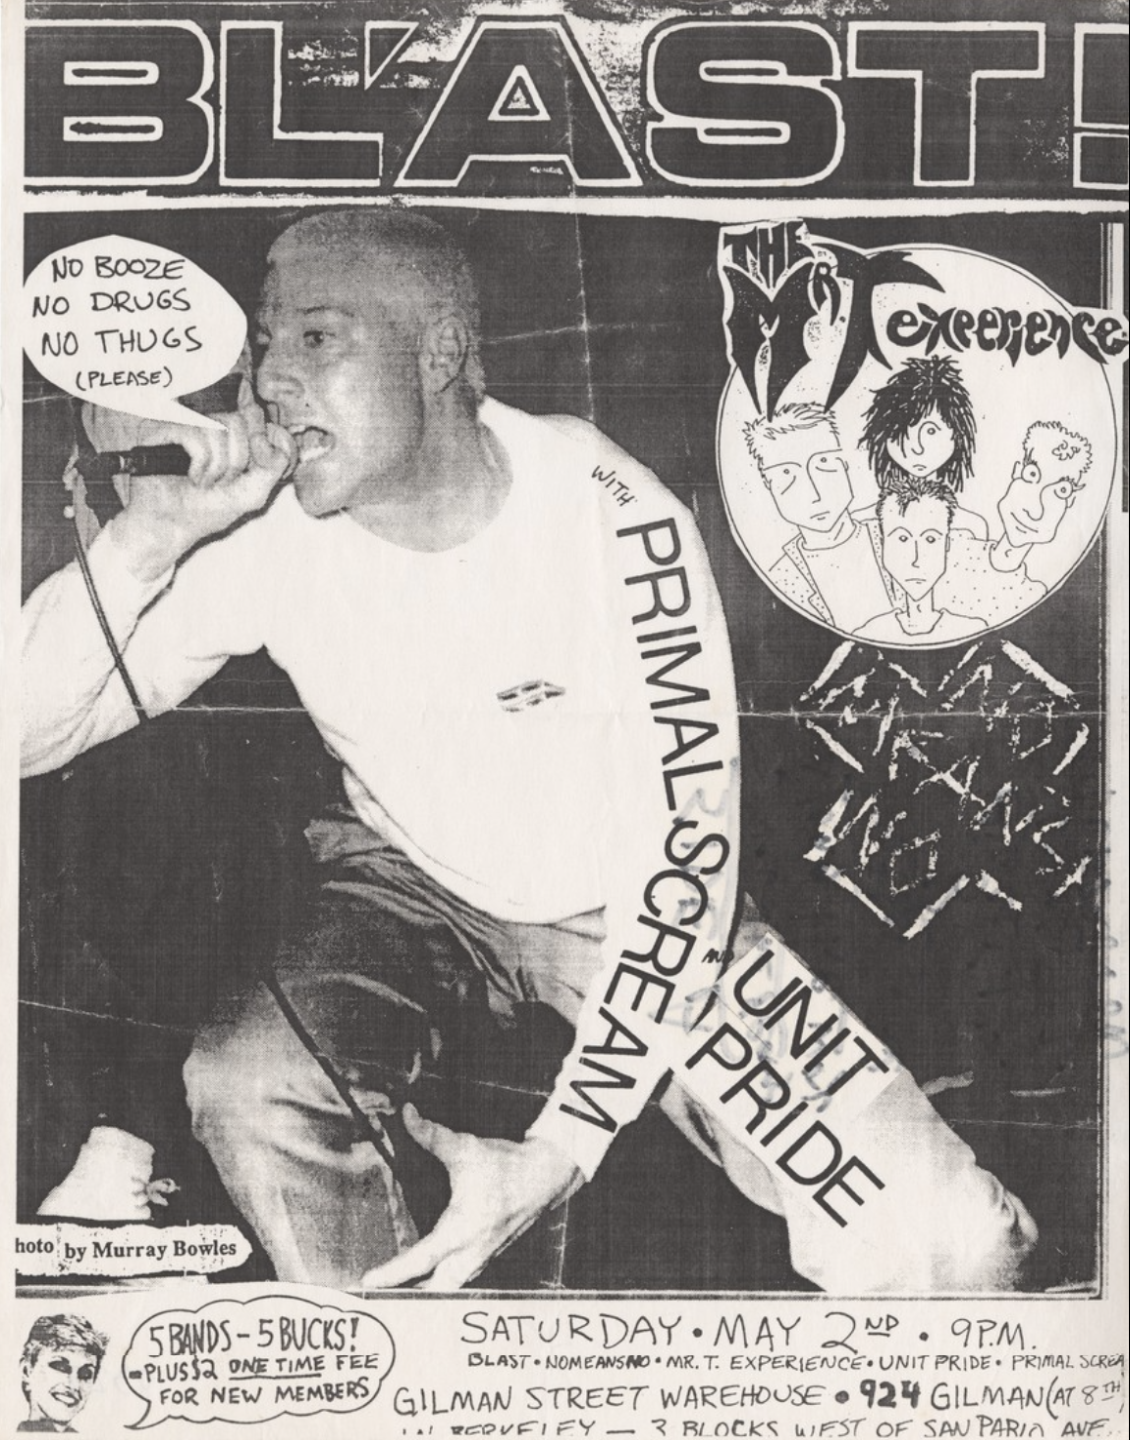 BL'AST!
NO BOOZE
NO DRUGS
NO THUGS
(PLEASE)
THE
MR T experience
WITH
PRIMAL SCREAM
NO
MEANS
NO
AND
UNIT
PRIDE
hoto by Murray Bowles
5 BANDS - 5 BUCKS!
PLUS $2 ONE TIME FEE
FOR NEW MEMBERS
SATURDAY • MAY 2ND • 9P.M.
BLAST • NOMEANSNO • MR. T. EXPERIENCE • UNIT PRIDE • PRIMAL SCREA
GILMAN STREET WAREHOUSE • 924 GILMAN (AT 8TH)
IN BERKELEY — 3 BLOCKS WEST OF SAN PABLO AVE.